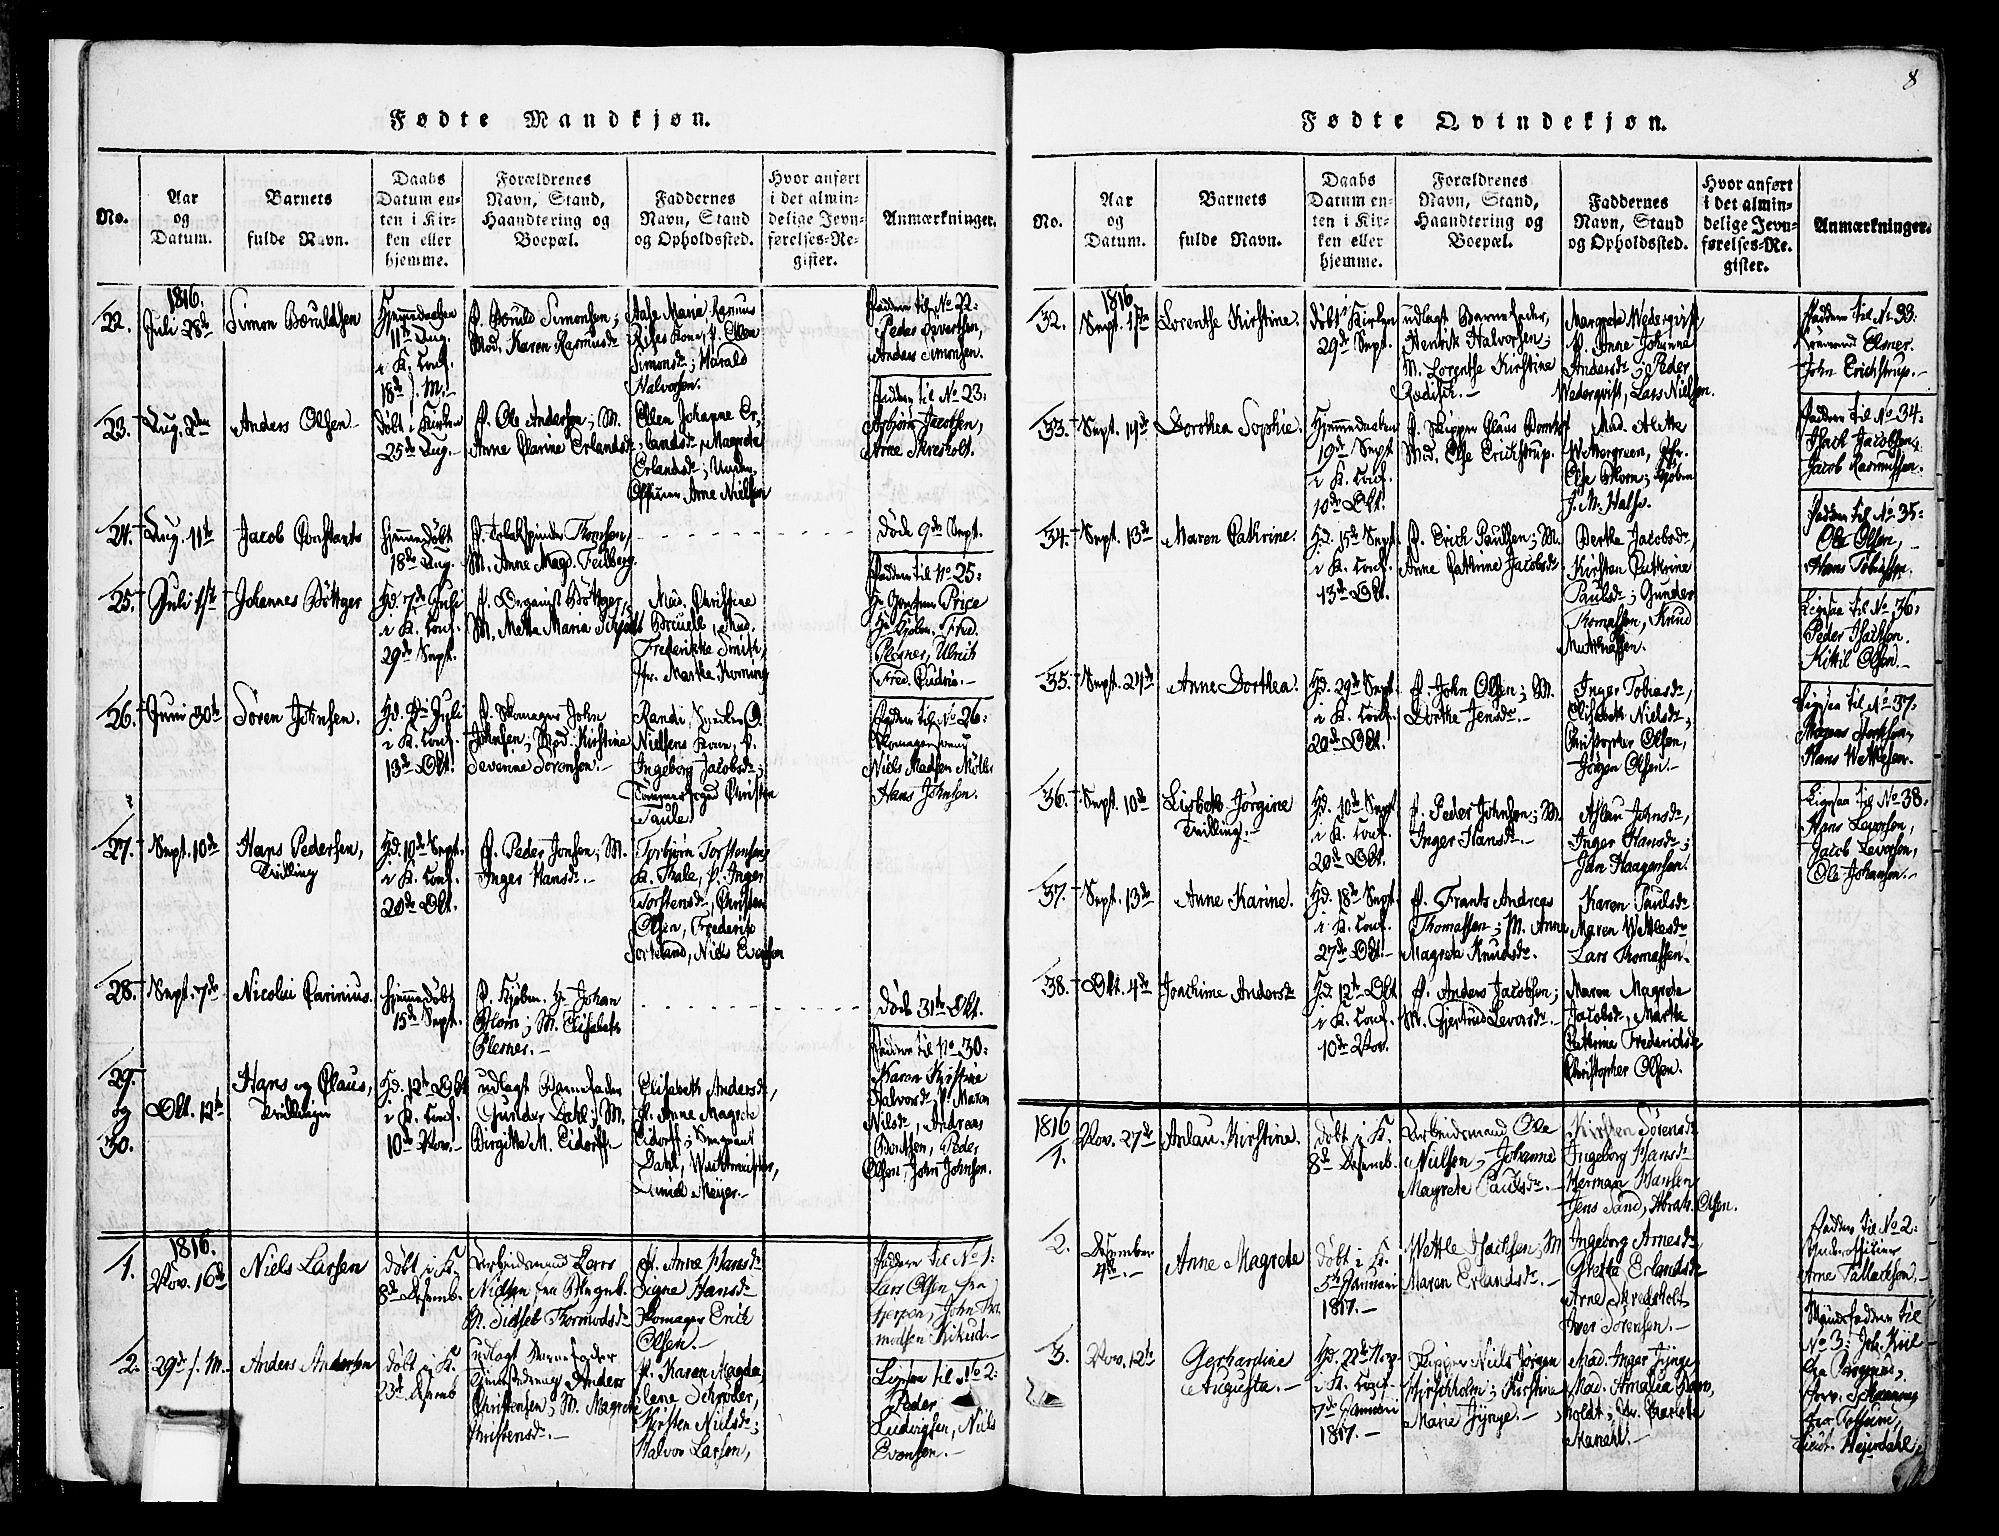 8
Fødte Mandkjøn.
No.
Aar
og
Datum.
Barnets
fulde Navn.
Daabs
Datum en-
ten i Kir-
ken eller
hjemme.
Forældrenes
Navn, Stand,
Haandtering og
Boepæl.
Faddernes
Navn, Stand
og Opholdssted.
Hvor anført
i det almin-
delige Jevn-
førelses-Re-
gister.
Anmærkninger.
22.
1816.
Juli 28de
Simon Børuldsen
Hjemmedøbt
11te Aug.
i K. Conf.
18de s. M.
F. Børuld Simonsen;
Mod. Karen Rasmusdr
Aase Maria Rasmus
Rises Kone, P. Ellen
Simonsdr; Harald
Halvorsen.
Faddere til No 22:
Peder Iversen,
Anders Simonsen.
23.
Aug. 2den
Anders Olsen
Døbt i Kirken
25de Aug.
F. Ole Andersen; M.
Anne Clarine Erlandsdr
Ellen Johanne Er-
landsdr, Magrete
Erlandsdr; Under-
Officeer Arne Nielsen
Faddere til No 23:
Asbjørn Jacobsen,
Arne Skresholt.
24.
Aug. 11te
Jacob Constants
Hjemmedøbt
18de Aug.
F. Tobakspinder Thomsen,
M. Anne Magd. Feilberg.
Døde 9de Sept.
25.
Juli 1ste
Johannes Böttger
Hd. 7de Juli
i K. Conf.
29de Sept.
F. Organist Böttger,
M. Metta Maria
Mad. Christine
Mad.
Frederikke Smith,
Jfr. Marthe Korning
Faddere til No 25:
Price
Hr. Kjøbm.
Plesner, Ulrich
Fred. Cudrio.
26.
Juni 30te
Sören Johnsen.
Hd. Juli
i K. Conf.
13de Okt.
F. Skomager John
Johnsen; Mod. Kirstine
Severine Sørensen.
Randi, Snedker O.
Nielsens Kone, P.
Ingeborg Jacobsdr;
Christen
Paulsen
Faddere til No 26:
Skomagersvend
Niels Madsen Möller
Hans Johnsen.
27.
Sept. 10de
Hans Pedersen,
Tvilling
Hd. 10de Sept.
i K. Conf.
20de Okt.
F. Peder Jonsen; M.
Inger Hansdr.
Torbjørn Torstensens
K. Thale, P. Inger
Torstensdr, Christen
Olsen, Frederik
Sorteland, Niels Evensen
28.
Sept. 7de
Nicolai Carinius.
Hjemmedøbt
15de Sept.
F. Kjøbm. Hr. Johan
Blom; M. Elisabeth
Plesner.
Døde 31te Okt.
29.
og
30.
Okt. 12te
Hans og Claus,
Tvillinger
Hd. 12te Okt
i K. Conf.
10de Nov.
udlagt Barnefader
Gunder Dahl; M.
Birgitte M. Eidorff
Elisabeth Andersdr,
P. Anne Magrete
Eidorff; Sergeant
Dahl, Wachtmeister,
Daniel Meyer.
Faddere til No 30:
Karen Kirstine
Halvorsdr, P. Maren
Nilsdr, Andreas
Bentsen, Peder
Olsen, John Johnsen.
1.
1816.
Nov. 16de
Niels Larsen
Døbt i K.
8de Desemb.
Arbeidsmand Lars
Nielsen fra
M. Sidsel Thormodsdr.
P. Anne Hansdr
Signe Hansdr
Skomager Erich
Olsen.
Faddere til No 1:
Lars Olsen fra
Gjerpen, John Tho-
modsen Kikud.
2.
29de s. M.
Anders Andersen
Døbt i K.
23de Desemb
udlagt Barnefader
Anders
Christensen; M. Magrete
Christensdr.
P. Karen Magda-
lene Schrøder,
Kirsten Nielsdr;
Halvor Larsen,
Ligesaa til No 2:
Peder
Ludvigsen, Niels
Evensen.
Fødte Qvindekjøn.
No.
Aar
og
Datum.
Barnets
fulde Navn.
Daabs
Datum en-
ten i Kir-
ken eller
hjemme.
Forældrenes
Navn, Stand,
Haandtering og
Boepæl.
Faddernes
Navn, Stand
og Opholdssted.
Hvor anført
i det almin-
delige Jevn-
førelses-Re-
gister.
Anmærkninger.
32.
1816
Sept. 1ste
Lorentse Kirstine.
Døbt i Kirken
29de Sept.
udlagt Barnefader,
Henrik Halvorsen;
M. Lorentse Kirstine
Rodisch.
Margrete Wederqvist,
P. Anne Johanne
Andersdr; Peder
Wederqvist, Lars Nielsen.
Faddere til No 33:
Elsner.
John Erichstrup.
33.
Sept. 14de
Dorothea Sophie.
Hjemmedøbt
19de Sept
i K. Conf.
10de Okt.
F. Skipper Claus
Mod. Else Erichstrup.
Mad. Alette
Wettergreen, Jfr.
Else Blom; Kjøbm.
J. M. Hals.
Faddere til No 34:
Isach Jacobsen,
Jacob Rasmussen.
34.
Sept. 13de
Maren Cathrine.
Hd. 15de Sept
i K. Conf.
13de Okt.
F. Erich Paulsen; M.
Anne Cathrine Jacobsdr
Berthe Jacobsdr,
Kirsten Cathrine
Paulsdr; Gunder
Thomassen, Knud
Mathiassen.
Faddere til No 35:
Ole Olsen,
Hans Tobiassen.
35.
Sept. 24de
Anne Dorthea.
Hd. 29de Sept
i K. Conf.
20de Okt.
F. John Olsen; M.
Dorthe Jensdr.
Inger Tobiasdr,
Elisabeth Nielsdr;
Christopher Olsen,
Jörgen Olsen.
Ligesaa til No 36:
Peder Isachsen.
Kittil Olsen.
36.
Sept. 10de
Lisbeth Jörgine
Tvilling.
Hd. 10de Sept
i K. Conf.
20de Okt.
F. Peder Johnsen; M.
Inger Hansdr.
Aslau Johnsdr,
Inger Hansdr;
Jan Haagensen.
Ligesaa til No 37:
Isachsen,
Hans Wetlesen.
37.
Sept. 13de
Anne Karine.
Hd. 18de Sept
i K. Conf.
27de Okt.
F. Frants Andreas
Thomassen; M. Anne
Magrete Knudsdr.
Karen Paulsdr
Maren Wetlesdr
Lars Thomassen.
Ligesaa til No 38:
Hans Leversen,
Jacob Leversen,
Ole Johansen.
38.
Okt. 4de
Joachime Andersdr
Hd. 12te Okt
i K. Conf.
10de Nov.
F. Anders Jacobsen;
M. Gjertrud Leversdr.
Maren Magrete
Jacobsdr, Marthe
Cathrine Frederichsdr
Christopher Olsen.
1816
1.
Nov. 27de
Anlau Kirstine.
Døbt i K.
8de Desemb.
Arbeidsmand Ole
Nielsen, Johanne
Magrete Paulsdr.
Kirsten Sörensdr
Ingeborg Hansdr
Herman Hansen
Jens Sand, Abrah. Olsen.
2.
Desember
4de.
Anne Magrete
Døbt i K.
5te Januari
1817.
Wettle Isachsen; M
Maren Erlandsdr.
Ingeborg Arnesdr
Grete Erlandsdr
Arne Skresholt
Iver Sörensen.
Faddere til No 2:
Underofficier
Arne Tallachsen.
3.
Nov. 12te
Gerhardine
Augusta.
Hd. 22de Nov.
i K. Conf.
7de Januari
1817.
Skipper Niels Jörgen
Hirschholm; Kirstine
Marie Jynge.
Mad. Inger Jynge
Mad. Amalia
Manahl.
Mandsfaddere til
No 3: Joh. Kiil
fra Porsgrund,
Lieut. Heyerdahl.